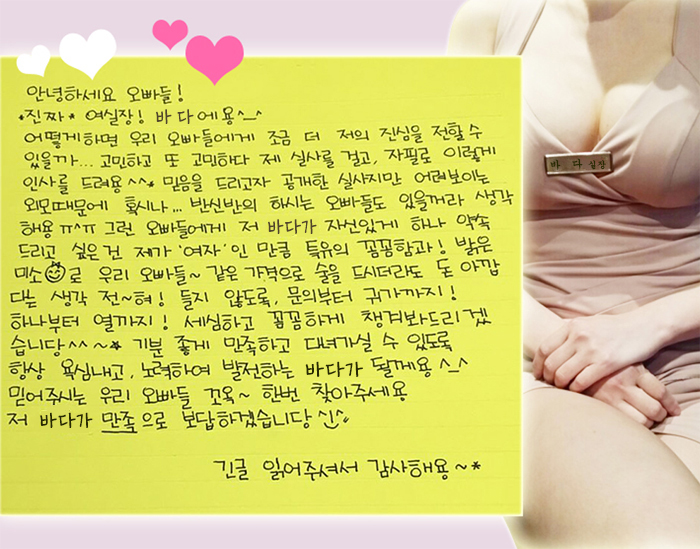 안녕하세요 오빠들!
*진짜* 여실장! 바다에용^_^
어떻게하면 우리 오빠들에게 조금 더 저의 진심을 전할수
있을까... 고민하고 또 고민하다 제 실사를 걸고, 자필로 이렇게
인사를 드려용^^* 믿음을 드리고자 공개한 실사지만 어려보이는
외모때문에 혹시나... 반신반의 하시는 오빠들도 있을꺼라 생각
해용 ㅠ^ㅠ 그런 오빠들에게 저 바다가 자신있게 하나 약속
드리고 싶은건 제가 '여자'인 만큼 특유의 꼼꼼함과! 밝은
미소로 우리 오빠들~ 같은 가격으로 술을 드시더라도 돈 아깝
다는 생각 전~혀! 들지 않도록, 문의부터 귀가까지!
하나부터 열까지! 세심하고 꼼꼼하게 챙겨봐드리겠
습니당^^~* 기분 좋게 만족하고 다녀가실 수 있도록
항상 욕심내고, 노력하여 발전하는 바다가 될게용^_^
믿어주시는 우리 오빠들 꼬옥~ 한번 찾아주세용
저 바다가 만족으로 보답하겠습니당
긴글 읽어주셔서 감사해용~*
바 다 실장